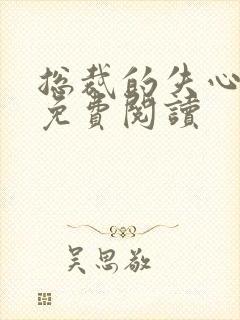 总裁的失心
免費閱讀
吴思敬